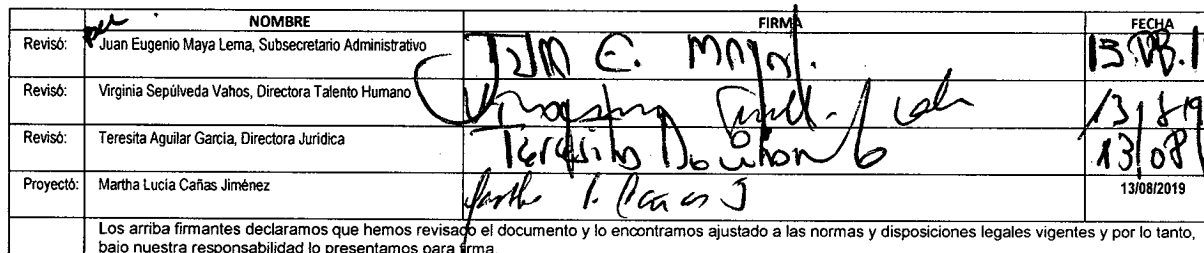 NOMBRE FIRMA FECHA
Revisó: Juan Eugenio Maya Lema, Subsecretario Administrativo Juan E. Maya L. 13.08.1
Revisó: Virginia Sepúlveda Vahos, Directora Talento Humano 13/8/19
Revisó: Teresita Aguilar García, Directora Jurídica Teresita Aguilar G 13/08/
Proyectó: Martha Lucía Cañas Jiménez Martha L. Cañas J 13/08/2019
Los arriba firmantes declaramos que hemos revisado el documento y lo encontramos ajustado a las normas y disposiciones legales vigentes y por lo tanto,
bajo nuestra responsabilidad lo presentamos para firma.